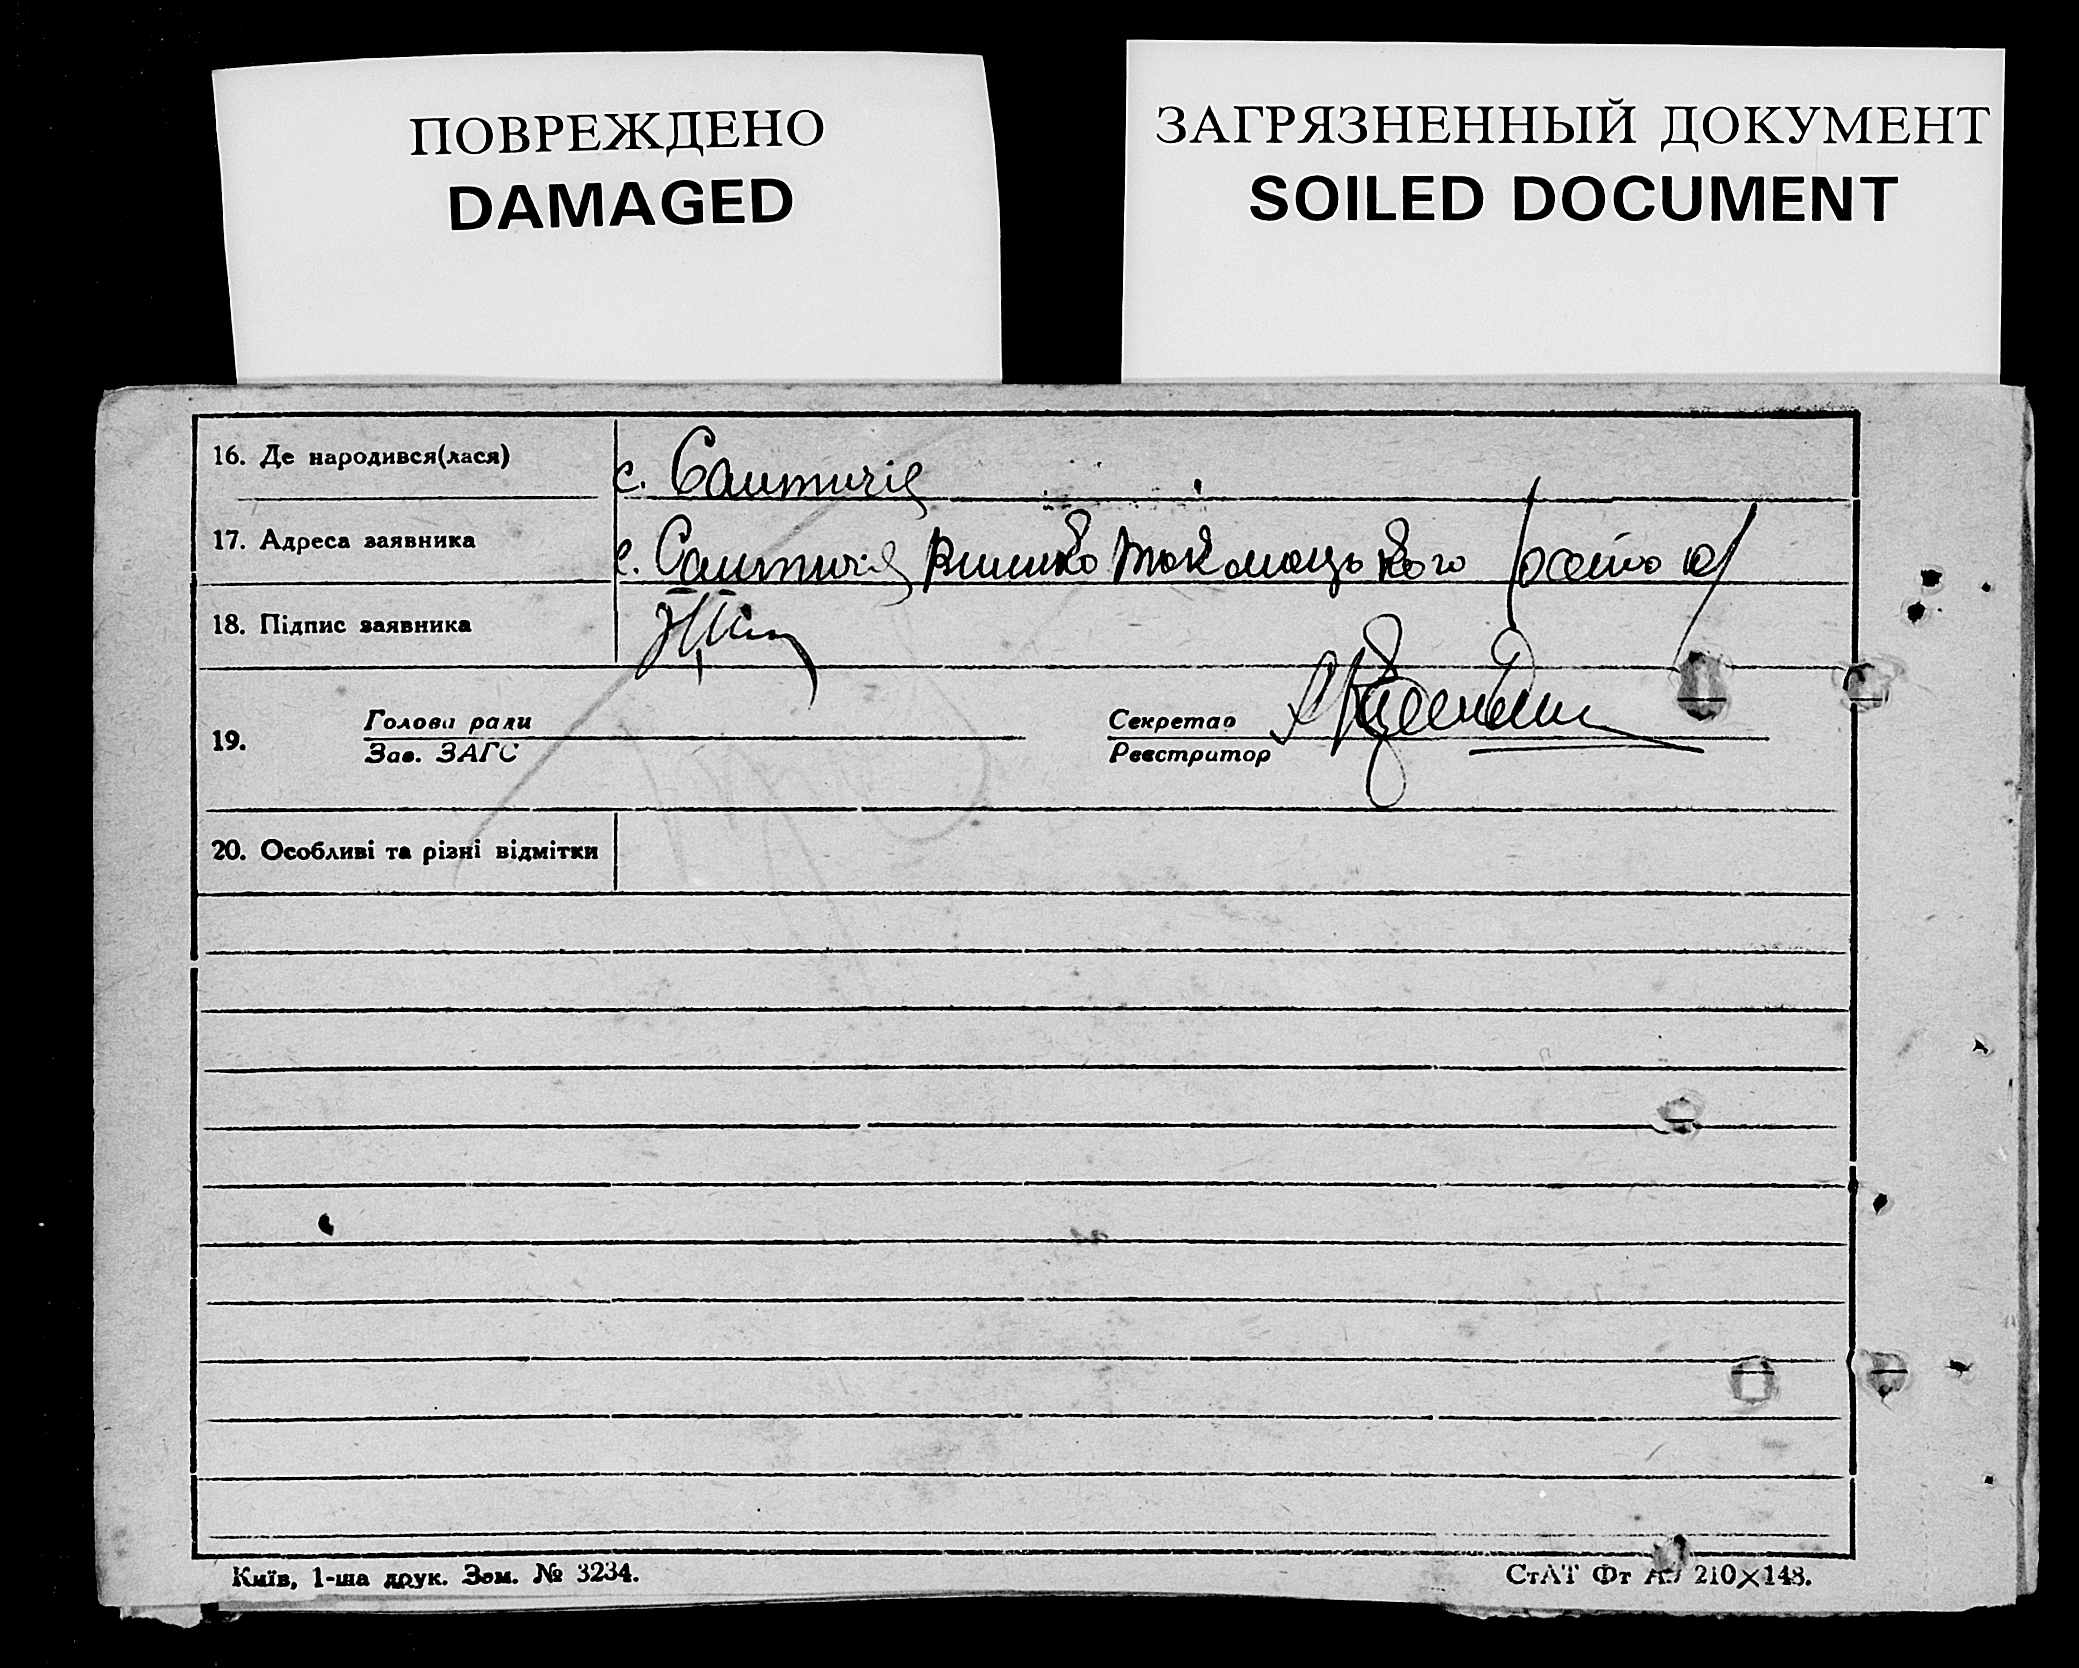 ПОВРЕЖДЕНО
DAMAGED
ЗАГРЯЗНЕННЫЙ ДОКУМЕНТ
SOILED DOCUMENT
16. Де народився(лася) с.
17. Адреса заявника с. району
18. Підпис заявника
19. Голова ради
Зав. ЗАГС
Секретар
Реєстратор
20. Особливі та різні відмітки
Київ, 1-ша друк. Зам. № 3234.
СтАТ Фт А5 210×148.